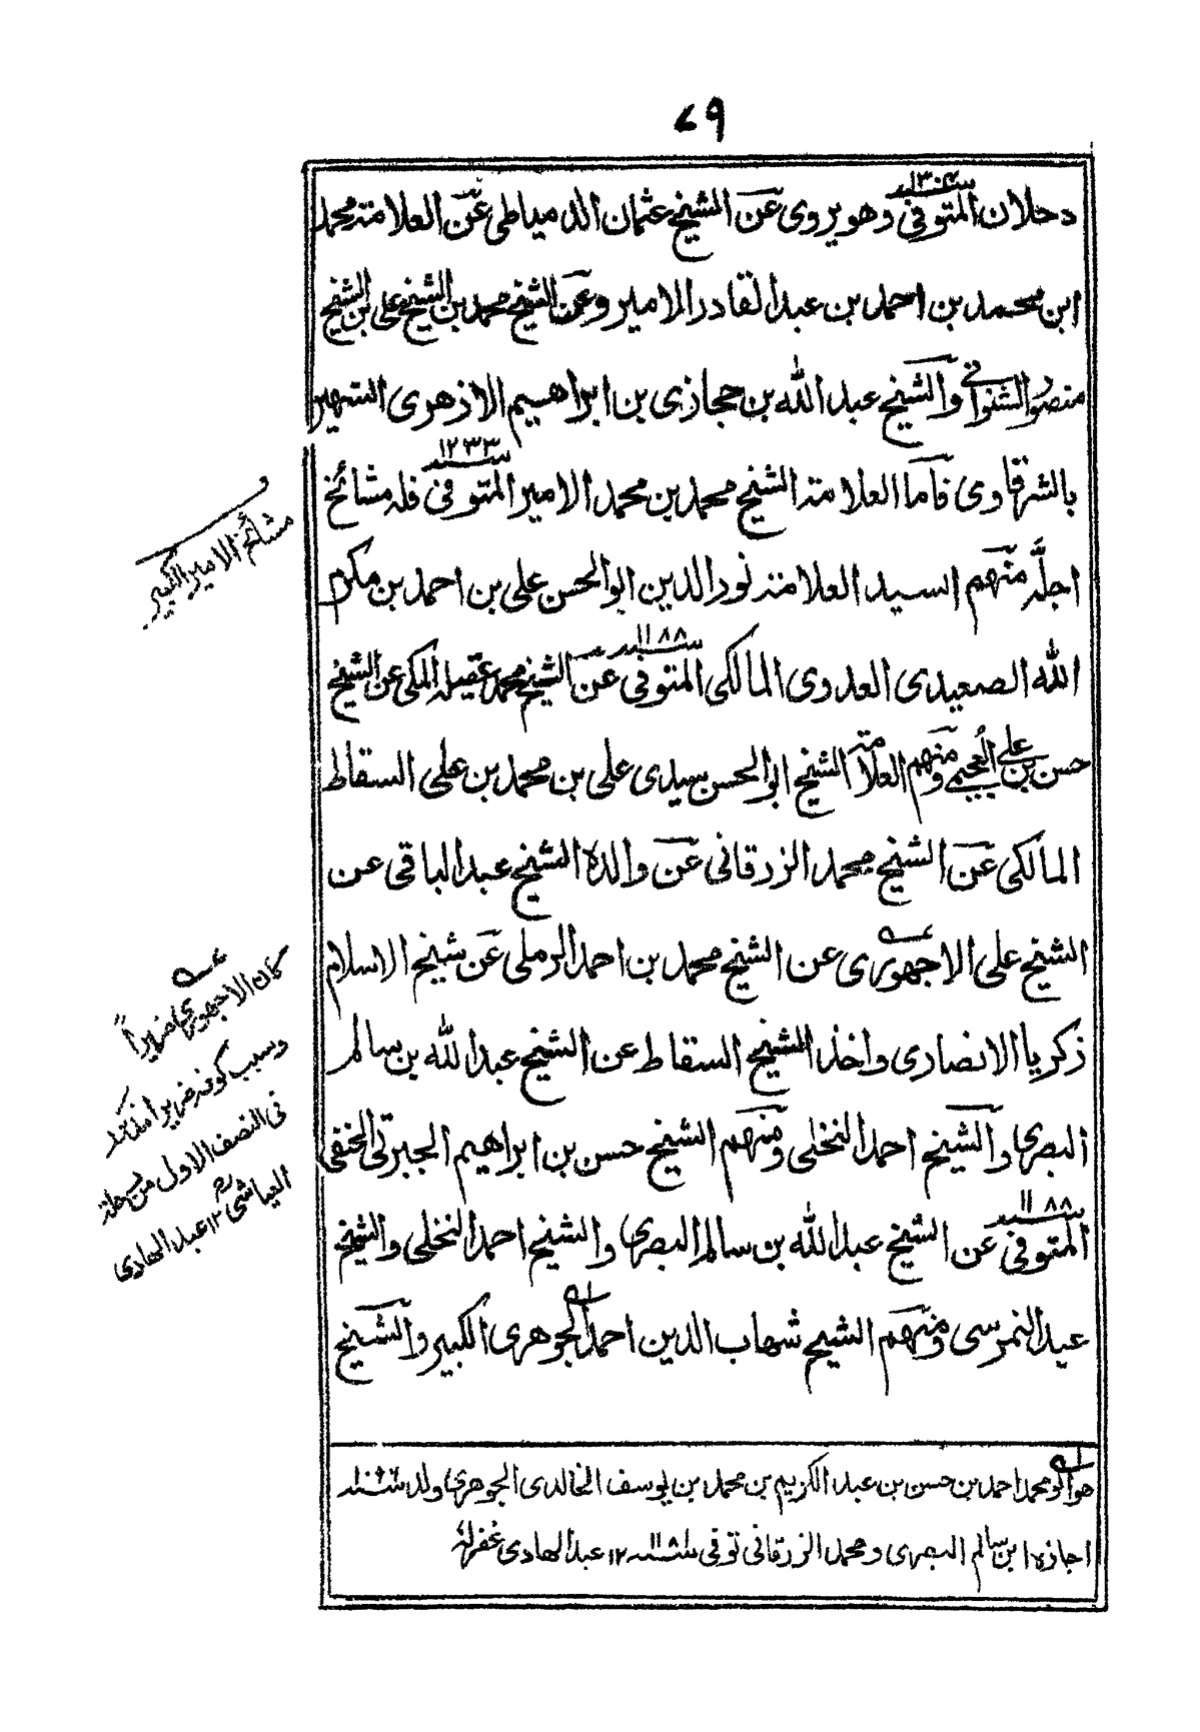 ٧٩
دحلان المتوفى سنه ١٣٠٤ وهو يروى عن الشيخ عثمان الدمياطى عن العلامة محمد
ابن محمد بن احمد بن عبد القادر الامير وعن الشيخ محمد بن الشيخ على بن الشيخ
منصور الشنوانى والشيخ عبد الله بن حجازى بن ابراهيم الازهرى الشهير
بالشرقاوى فاما العلامة الشيخ محمد بن محمد الامير المتوفى سنه ١٢٣٣ فله مشائخ
اجلّه منهم السيد العلامة نور الدين ابو الحسن على بن احمد بن مكرم
الله الصعيدى العدوى المالكى المتوفى سنه ١١٨٨ عن الشيخ محمد عقيله المكى عن الشيخ
حسن بن على العُجيمى ومنهم العلامة الشيخ ابو الحسن سيدى على بن محمد بن على السقاط
المالكى عن الشيخ محمد الزرقانى عن والده الشيخ عبد الباقى عن
الشيخ على الاجهورى عن الشيخ محمد بن احمد الرملى عن شيخ الاسلام
زكريا الانصارى واخذ الشيخ السقاط عن الشيخ عبد الله بن سالم
البصرى والشيخ احمد النخلى ومنهم الشيخ حسن بن ابراهيم الجبرتى الحنفى
المتوفى سنه ١١٨٨ عن الشيخ عبد الله بن سالم البصرى والشيخ احمد النخلى والشيخ
عيد النمرسى ومنهم الشيخ شهاب الدين احمد الجوهرى الكبير والشيخ
مشائخ الامير الكبير
كان الاجهورى ضريراً
وسبب كونه ضريرا مذكور
فى النصف الاول من رحلة
العياشى ١٢ عبد الهادى
هو ابو محمد احمد بن حسن بن عبد الكريم بن محمد بن يوسف الخالدى الجوهرى ولد
اجازه ابن سالم البصرى ومحمد الزرقانى توفى ١٢ عبد الهادى غفر له